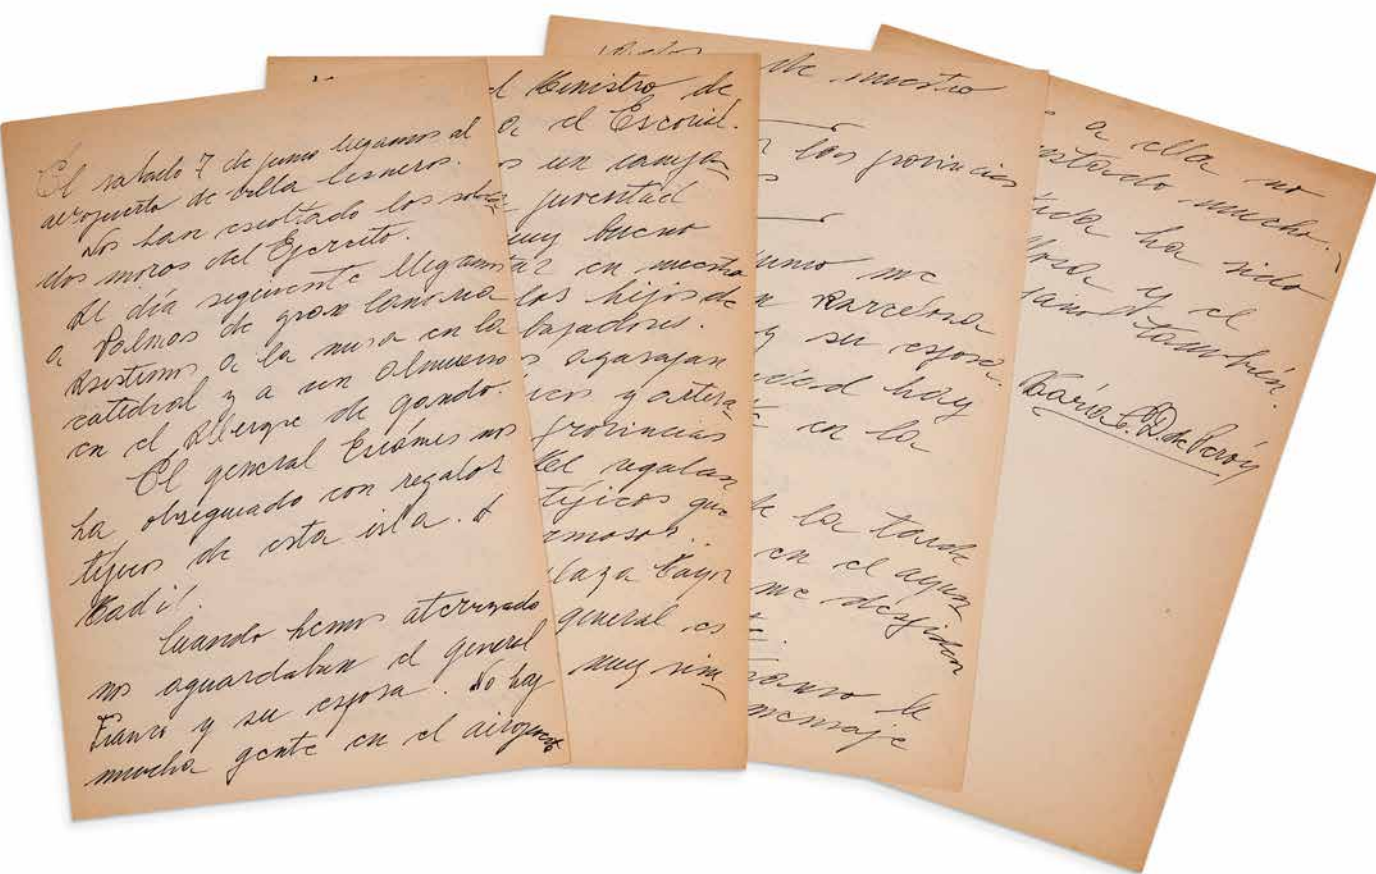 El sabado 7 de junio llegamos al
aeropuerto de villa Cisneros.
Nos han escoltado los solda
dos moros del Ejercito.
Al día seguiente llegamos
a Palmas de gran Canaria
Asistimos a la misa en la
catedral y a un almuerzo
en el Albergue de gando.
El general nos
ha obseguiado con regalos
típicos de esta isla. A
Madid.
Cuando hemos aterrizado
nos aguardaban el general
Franco y su esposa. No hay
mucha gente en el airopuerto
l Ministro de
a el Escorial.
s un campa
juventud
muy bueno
ar en nuestra
los hijos de
bajadores.
s agasajan
icos y artesa
provincias
Me regalan
típicos que
rmosos.
plaza Mayor
general es
muy sim
de nuestro
las provincias
s
junio me
n Barcelona
y su esposa.
hay
en la
de la tarde
en el ayun
me despiden
Franco le
mensaje
a ella no
ustado mucho.
ha sido
llosa y el
cano también.
María E. D. de Perón